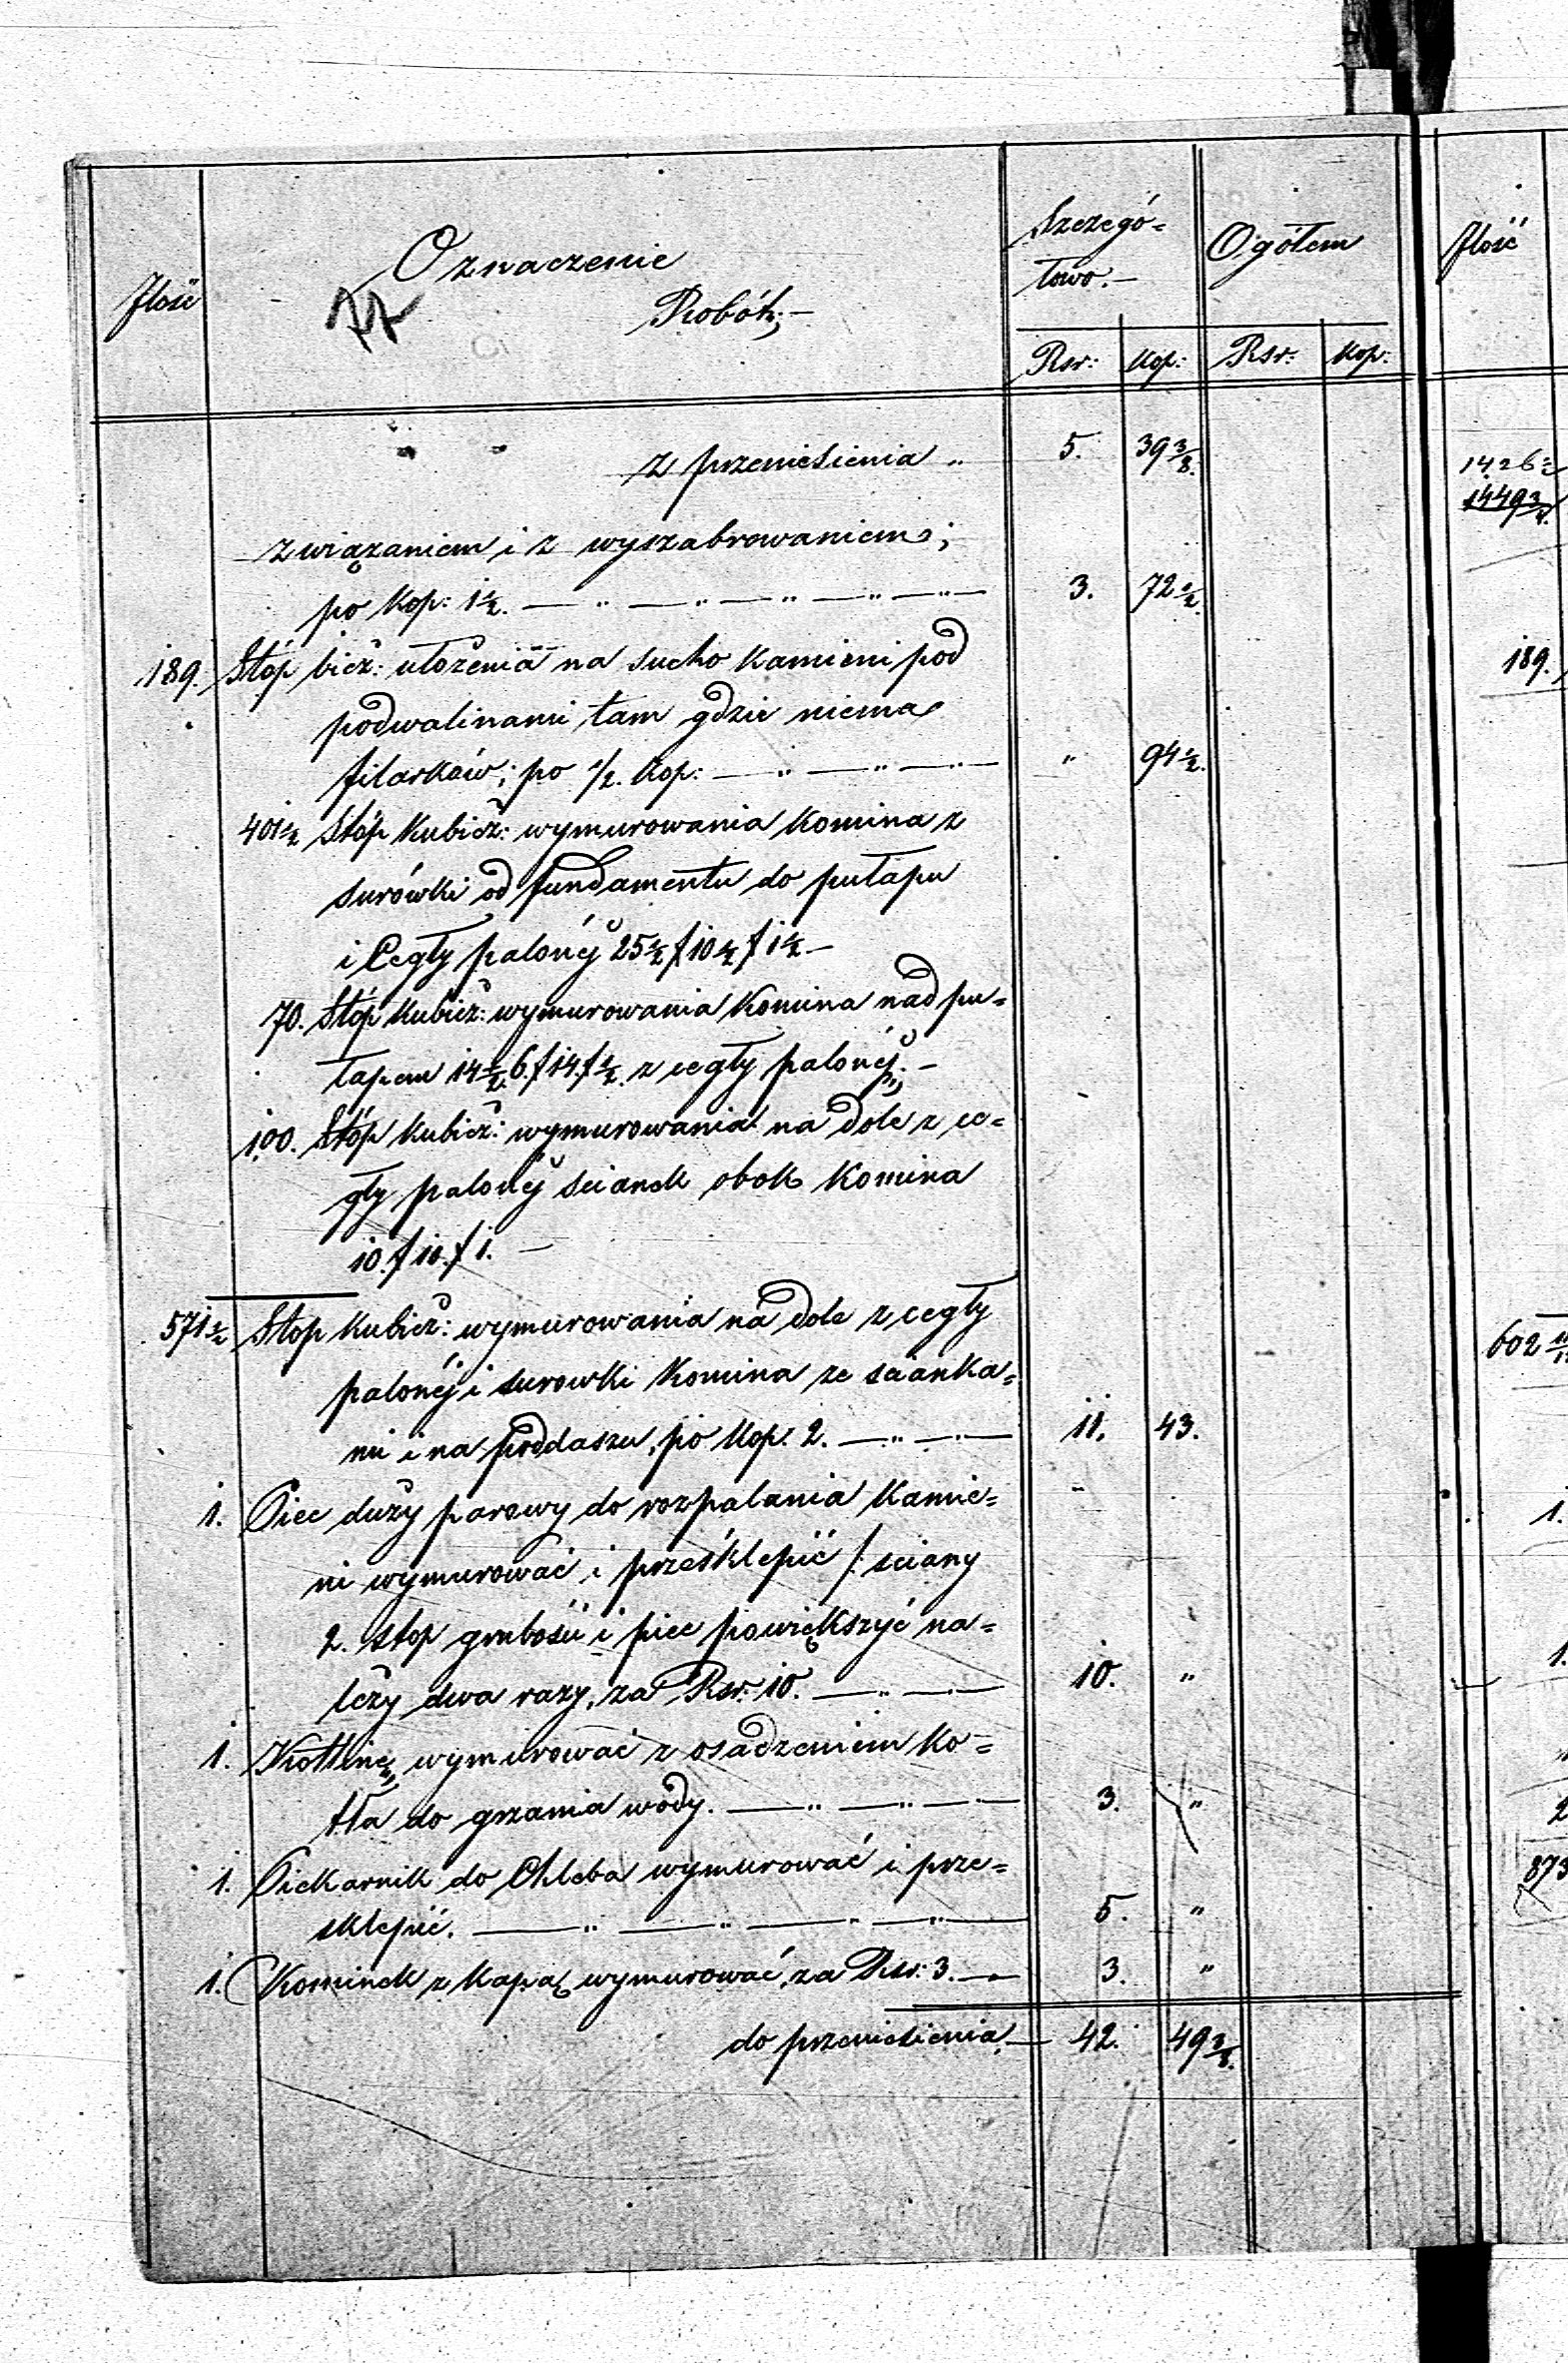 Ilość Oznaczenie Robót;— Szczegó= Ogółem
łowo.—
Rsr: Kop: Rsr: Kop:
z przeniesienia „ 5. 39 3/8.
związaniem i z wyszabrowaniem;
po Kop: 1 1/2. — „ — „ — „ — „ — 3. 72 1/2.
189. Stóp bież: ułożenia na sucho Kamieni pod
podwalinami tam gdzie niema
filarków; po 1/2. Kop: — „ — „ — „ 94 1/2.
401 1/2 Stóp Kubicz: wymurowania Komina z
surówki od fundamentu do pułapu
i Cegły palonéj 25 1/2 / 10 1/2 / 1 1/2 —
70. Stóp Kubicz: wymurowania Komina nad pu=
łapem 14 1/2. 6. / 14. / 1/2. z cegły palonéj. —
100. Stóp Kubicz: wymurowania na dole z ce=
gły palonéj scianek obok Komina
10. / 10. / 1. —
571 1/2 Stop Kubicz: wymurowania na dole z cegły
palonéj i surowki Komina ze scianka=
mi i na poddaszu, po Kop. 2. — „ — „ — 11. 43.
1. Piec duży parowy do rozpalania Kamie=
ni wymurować i przesklepić /: sciany
2. stop grubości i piec powiększyć na=
leży dwa razy, za Rsr. 10. — „ — „ — 10. „
1. Kotlinę wymurować z osadzeniem Ko=
tła do grzania wody. — „ — „ — 3. „
1. Piekarnik do Chleba wymurować i prze=
sklepić. — „ — „ — „ — „ — 5. „
1. Kominek z Kapą wymurować, za Rsr: 3. — 3. „
do przeniesienia — 42. 49 3/8.
Ilość
1426
1449 3/8.
189.
602
1.
1.
2
873